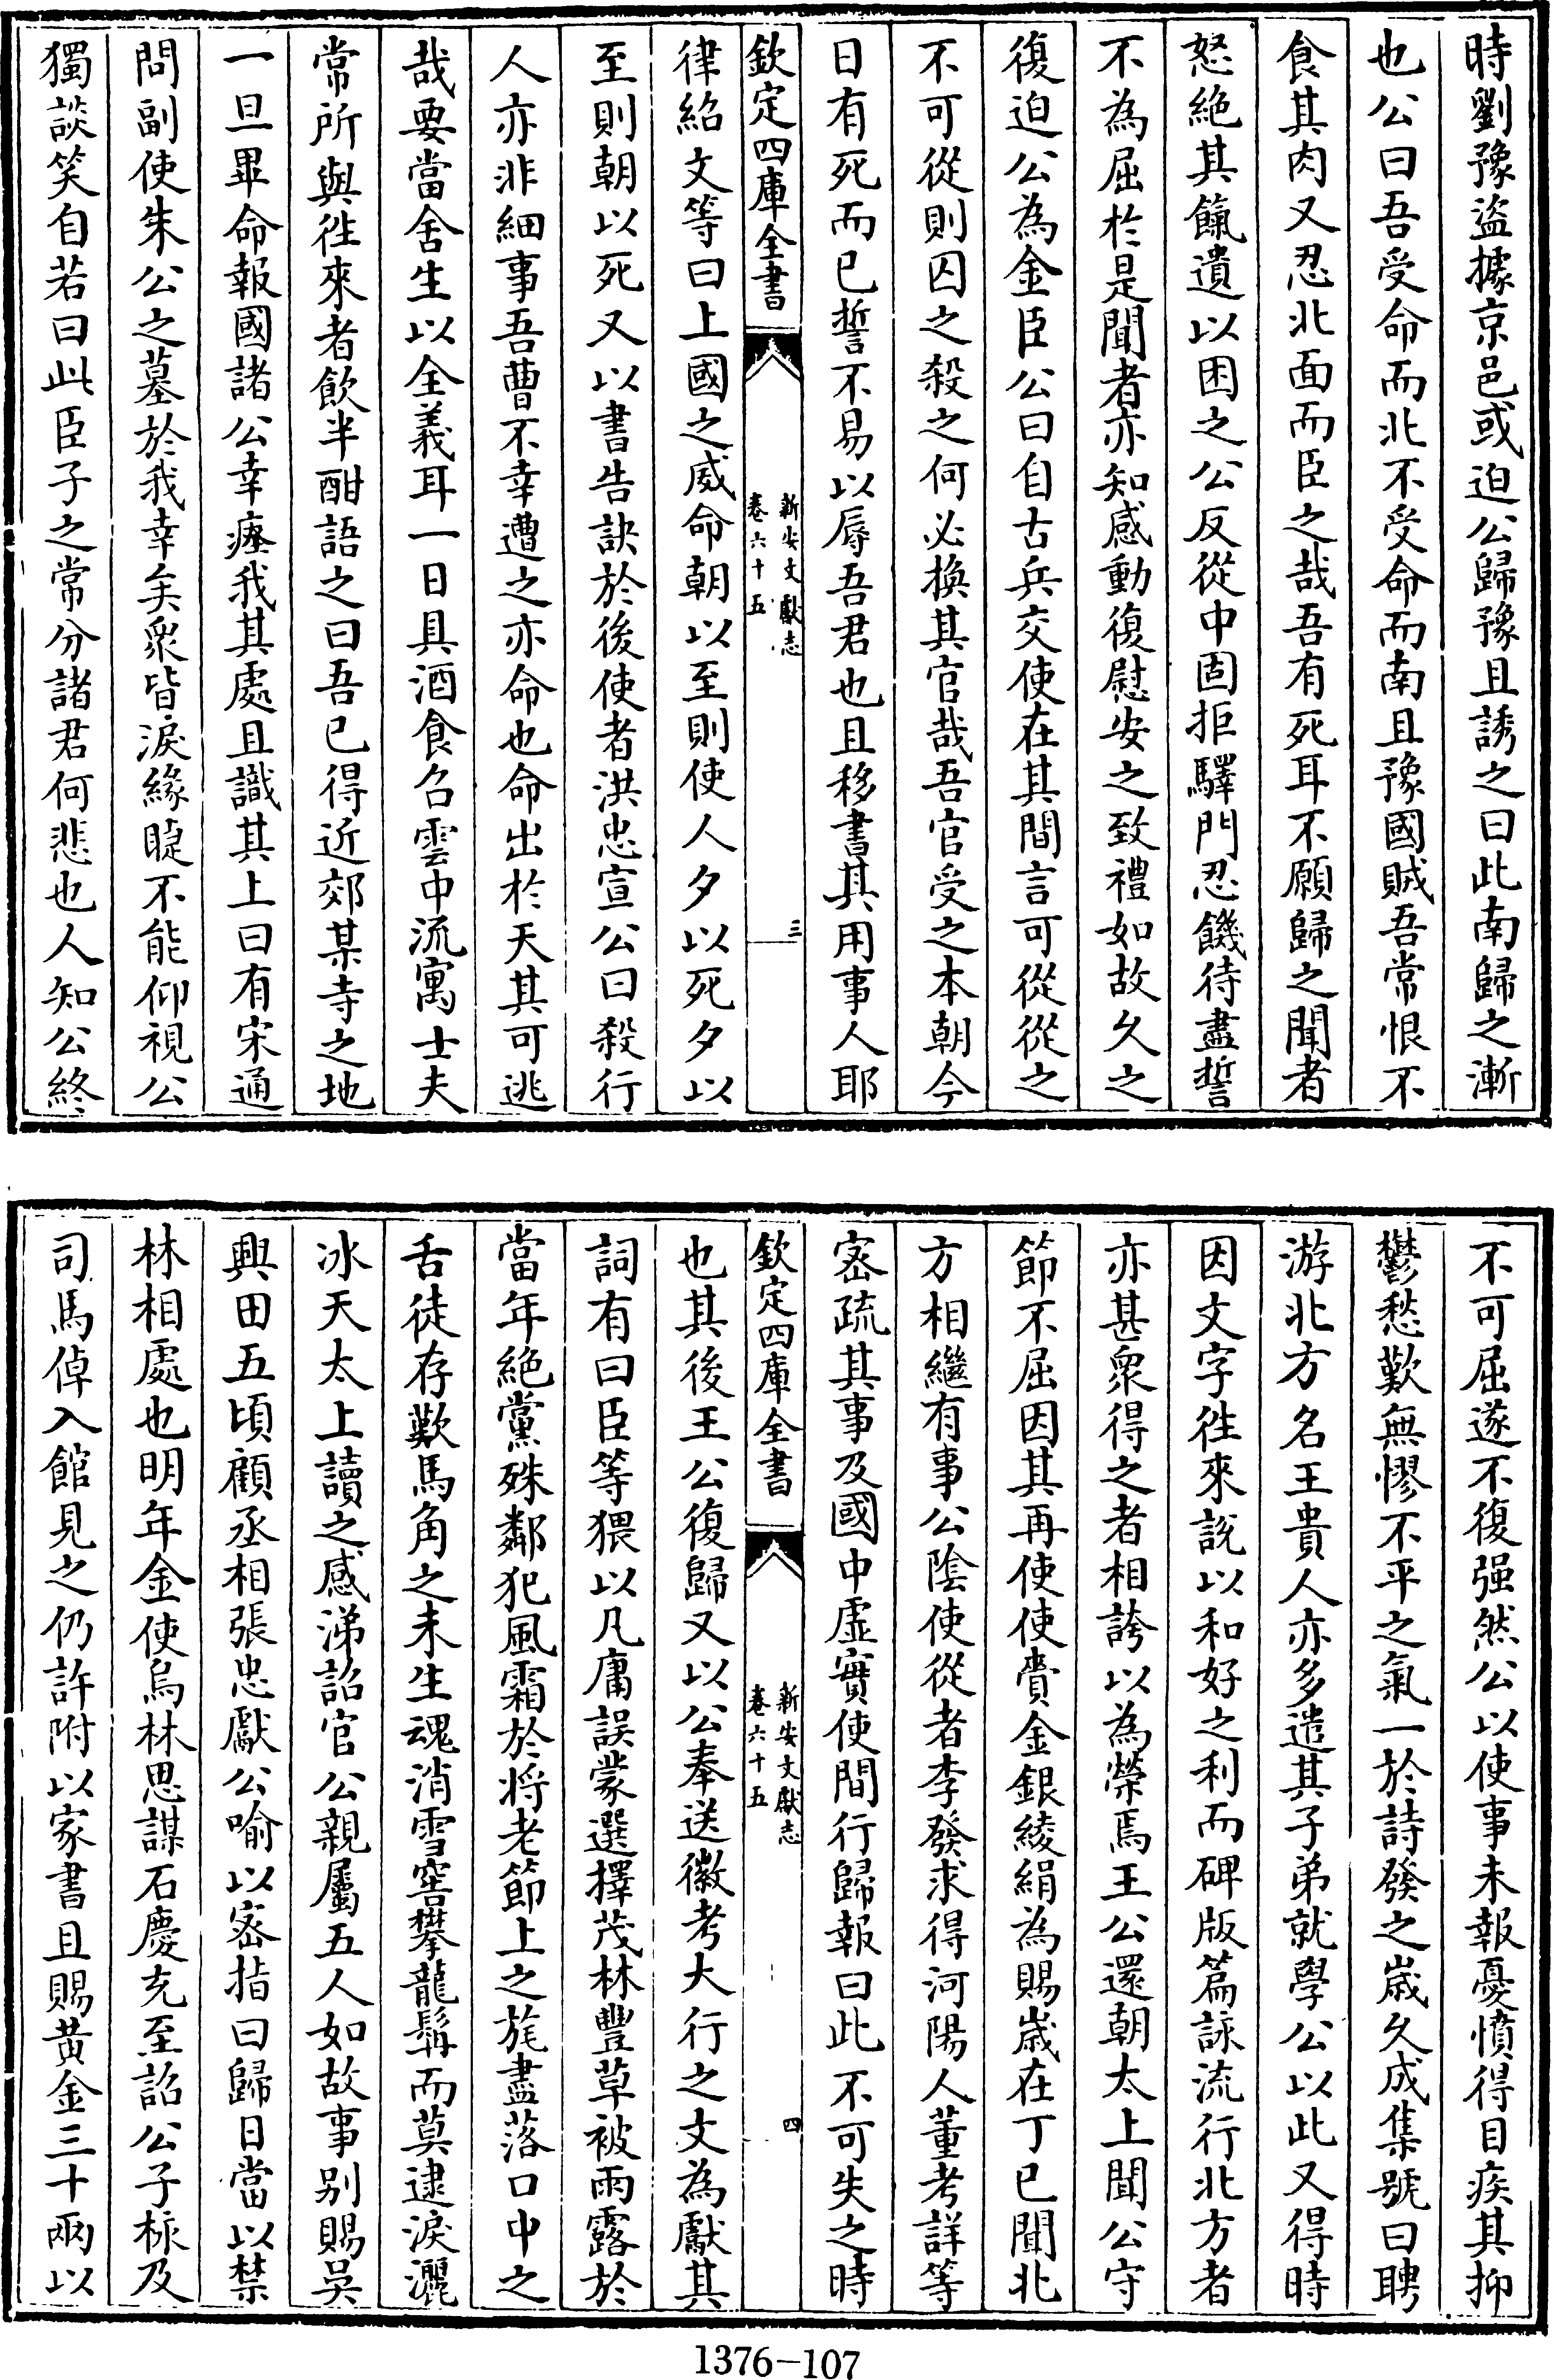 時劉豫盜據京邑或迫公歸豫且誘之曰此南歸之漸
也公曰吾受命而北不受命而南且豫國賊吾常恨不
食其肉又忍北面而臣之哉吾有死耳不願歸之聞者
怒絶其餼遺以困之公反從中固拒驛門忍饑待盡誓
不為屈於是聞者亦知感動復慰安之致禮如故久之
復迫公為金臣公曰自古兵交使在其間言可從從之
不可從則囚之殺之何必換其官哉吾官受之本朝今
日有死而已誓不易以辱吾君也且移書其用事人耶
欽定四庫全書
新安文獻志
卷六十五
三
律紹文等曰上國之威命朝以至則使人夕以死夕以
至則朝以死又以書告訣於後使者洪忠宣公曰殺行
人亦非細事吾曹不幸遭之亦命也命出於天其可逃
哉要當舍生以全義耳一日具酒食召雲中流寓士夫
常所與徃來者飲半酣語之曰吾已得近郊某寺之地
一旦畢命報國諸公幸瘞我其處且識其上曰有宋通
問副使朱公之墓於我幸矣衆皆淚緣睫不能仰視公
獨談笑自若曰此臣子之常分諸君何悲也人知公終
不可屈遂不復强然公以使事未報憂憤得目疾其抑
鬱愁歎無憀不平之氣一於詩發之歲久成集號曰聘
游北方名王貴人亦多遣其子弟就學公以此又得時
因文字徃來說以和好之利而碑版篇詠流行北方者
亦甚衆得之者相誇以為榮焉王公還朝太上聞公守
節不屈因其再使使賫金銀綾絹為賜歲在丁巳聞北
方相繼有事公陰使從者李發求得河陽人董考詳等
宻疏其事及國中虛實使間行歸報曰此不可失之時
欽定四庫全書
新安文獻志
卷六十五
四
也其後王公復歸又以公奉送徽考大行之文為獻其
詞有曰臣等猥以凡庸誤蒙選擇茂林豐草被雨露於
當年絶黨殊鄰犯風霜於將老節上之旄盡落口中之
舌徒存歎馬角之未生魂消雪窖攀龍髯而莫逮淚灑
冰天太上讀之感涕詔官公親屬五人如故事别賜吳
興田五頃顧丞相張忠獻公喻以宻指曰歸日當以禁
林相處也明年金使烏林思謀石慶充至詔公子林及
司馬倬入館見之仍許附以家書且賜黃金三十兩以
1376-107